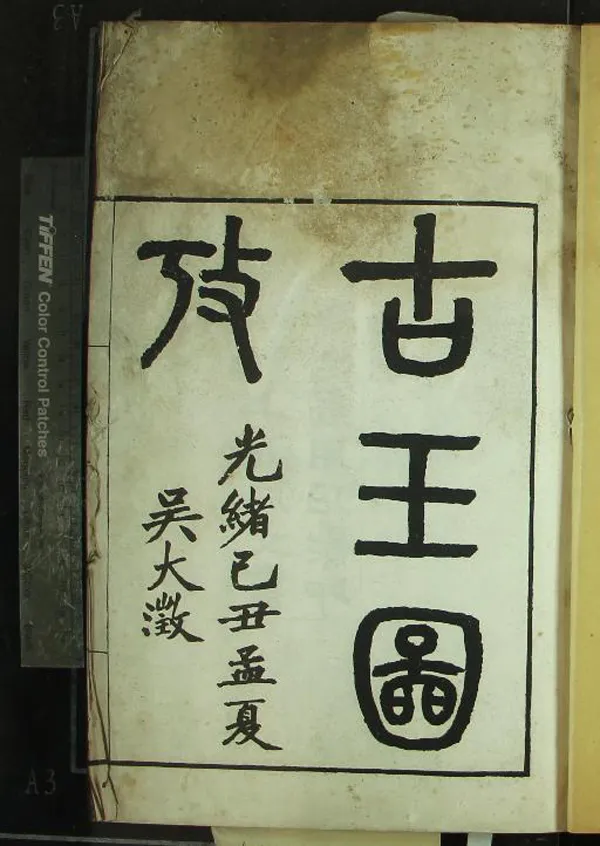 古王圖
攷
光緒己丑孟夏
吳大澂
TIFFEN Color Control Patches
A3
A3